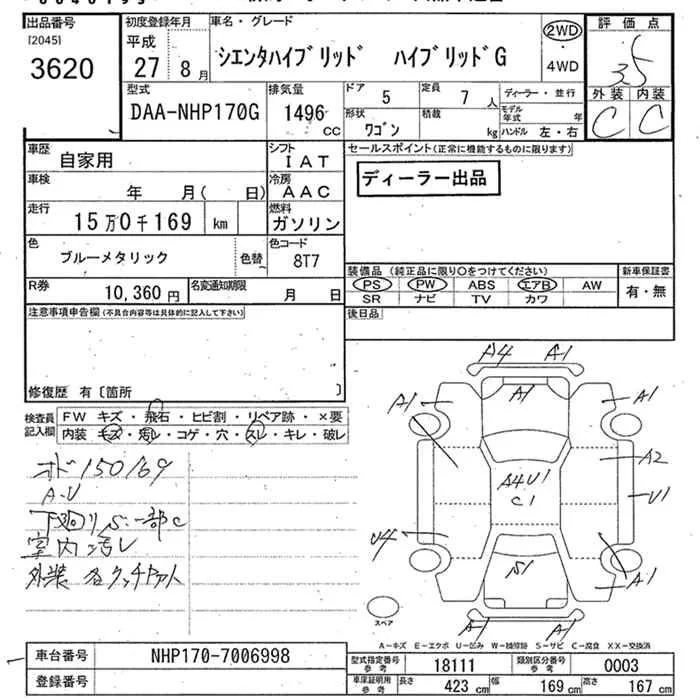 出品番号
[2045]
3620
初度登録年月
平成
27 8月
車名・グレード
シエンタハイブリッド ハイブリッドG
2WD
・
4WD
評価点
3.5
外装 内装
C C
型式
DAA-NHP170G
排気量
1496 CC
ドア 5
定員 7人
形状 ワゴン
積載 kg
ディーラー・並行
モデル年式 年
ハンドル 左・右
車歴 自家用
シフト IAT
車検 年 月( 日)
冷房 AAC
走行 15万0千169 km
燃料 ガソリン
色 ブルーメタリック 色替
色コード 8T7
R券 10,360円
名変通知期限 月 日
セールスポイント(正常に機能するものに限ります)
ディーラー出品
装備品 (純正品に限り○をつけてください)
新車保証書
PS PW ABS エアB AW
SR ナビ TV カワ
有・無
後日品
注意事項申告欄(不具合内容等は具体的に記入して下さい)
修復歴 有〔箇所 〕
検査員記入欄
FW キズ・飛石・ヒビ割・リペア跡・×要
内装・キズ・汚レ・コゲ・穴・スレ・キレ・破レ
オド150169
A・U
下廻りS・一部C
室内汚レ
外装 各タッチアト
A4 A1
A1
A1 A1
A4U1
C1
A2
U1
U4
S1
A1
A1 A1
スペア
A－キズ E－エクボ U－凹み W－補修跡 S－サビ C－腐食 XX－交換済
車台番号 NHP170-7006998
登録番号
型式指定番号参考 18111
類別区分番号参考 0003
車庫証明用参考
長さ 423 cm
幅 169 cm
高さ 167 cm